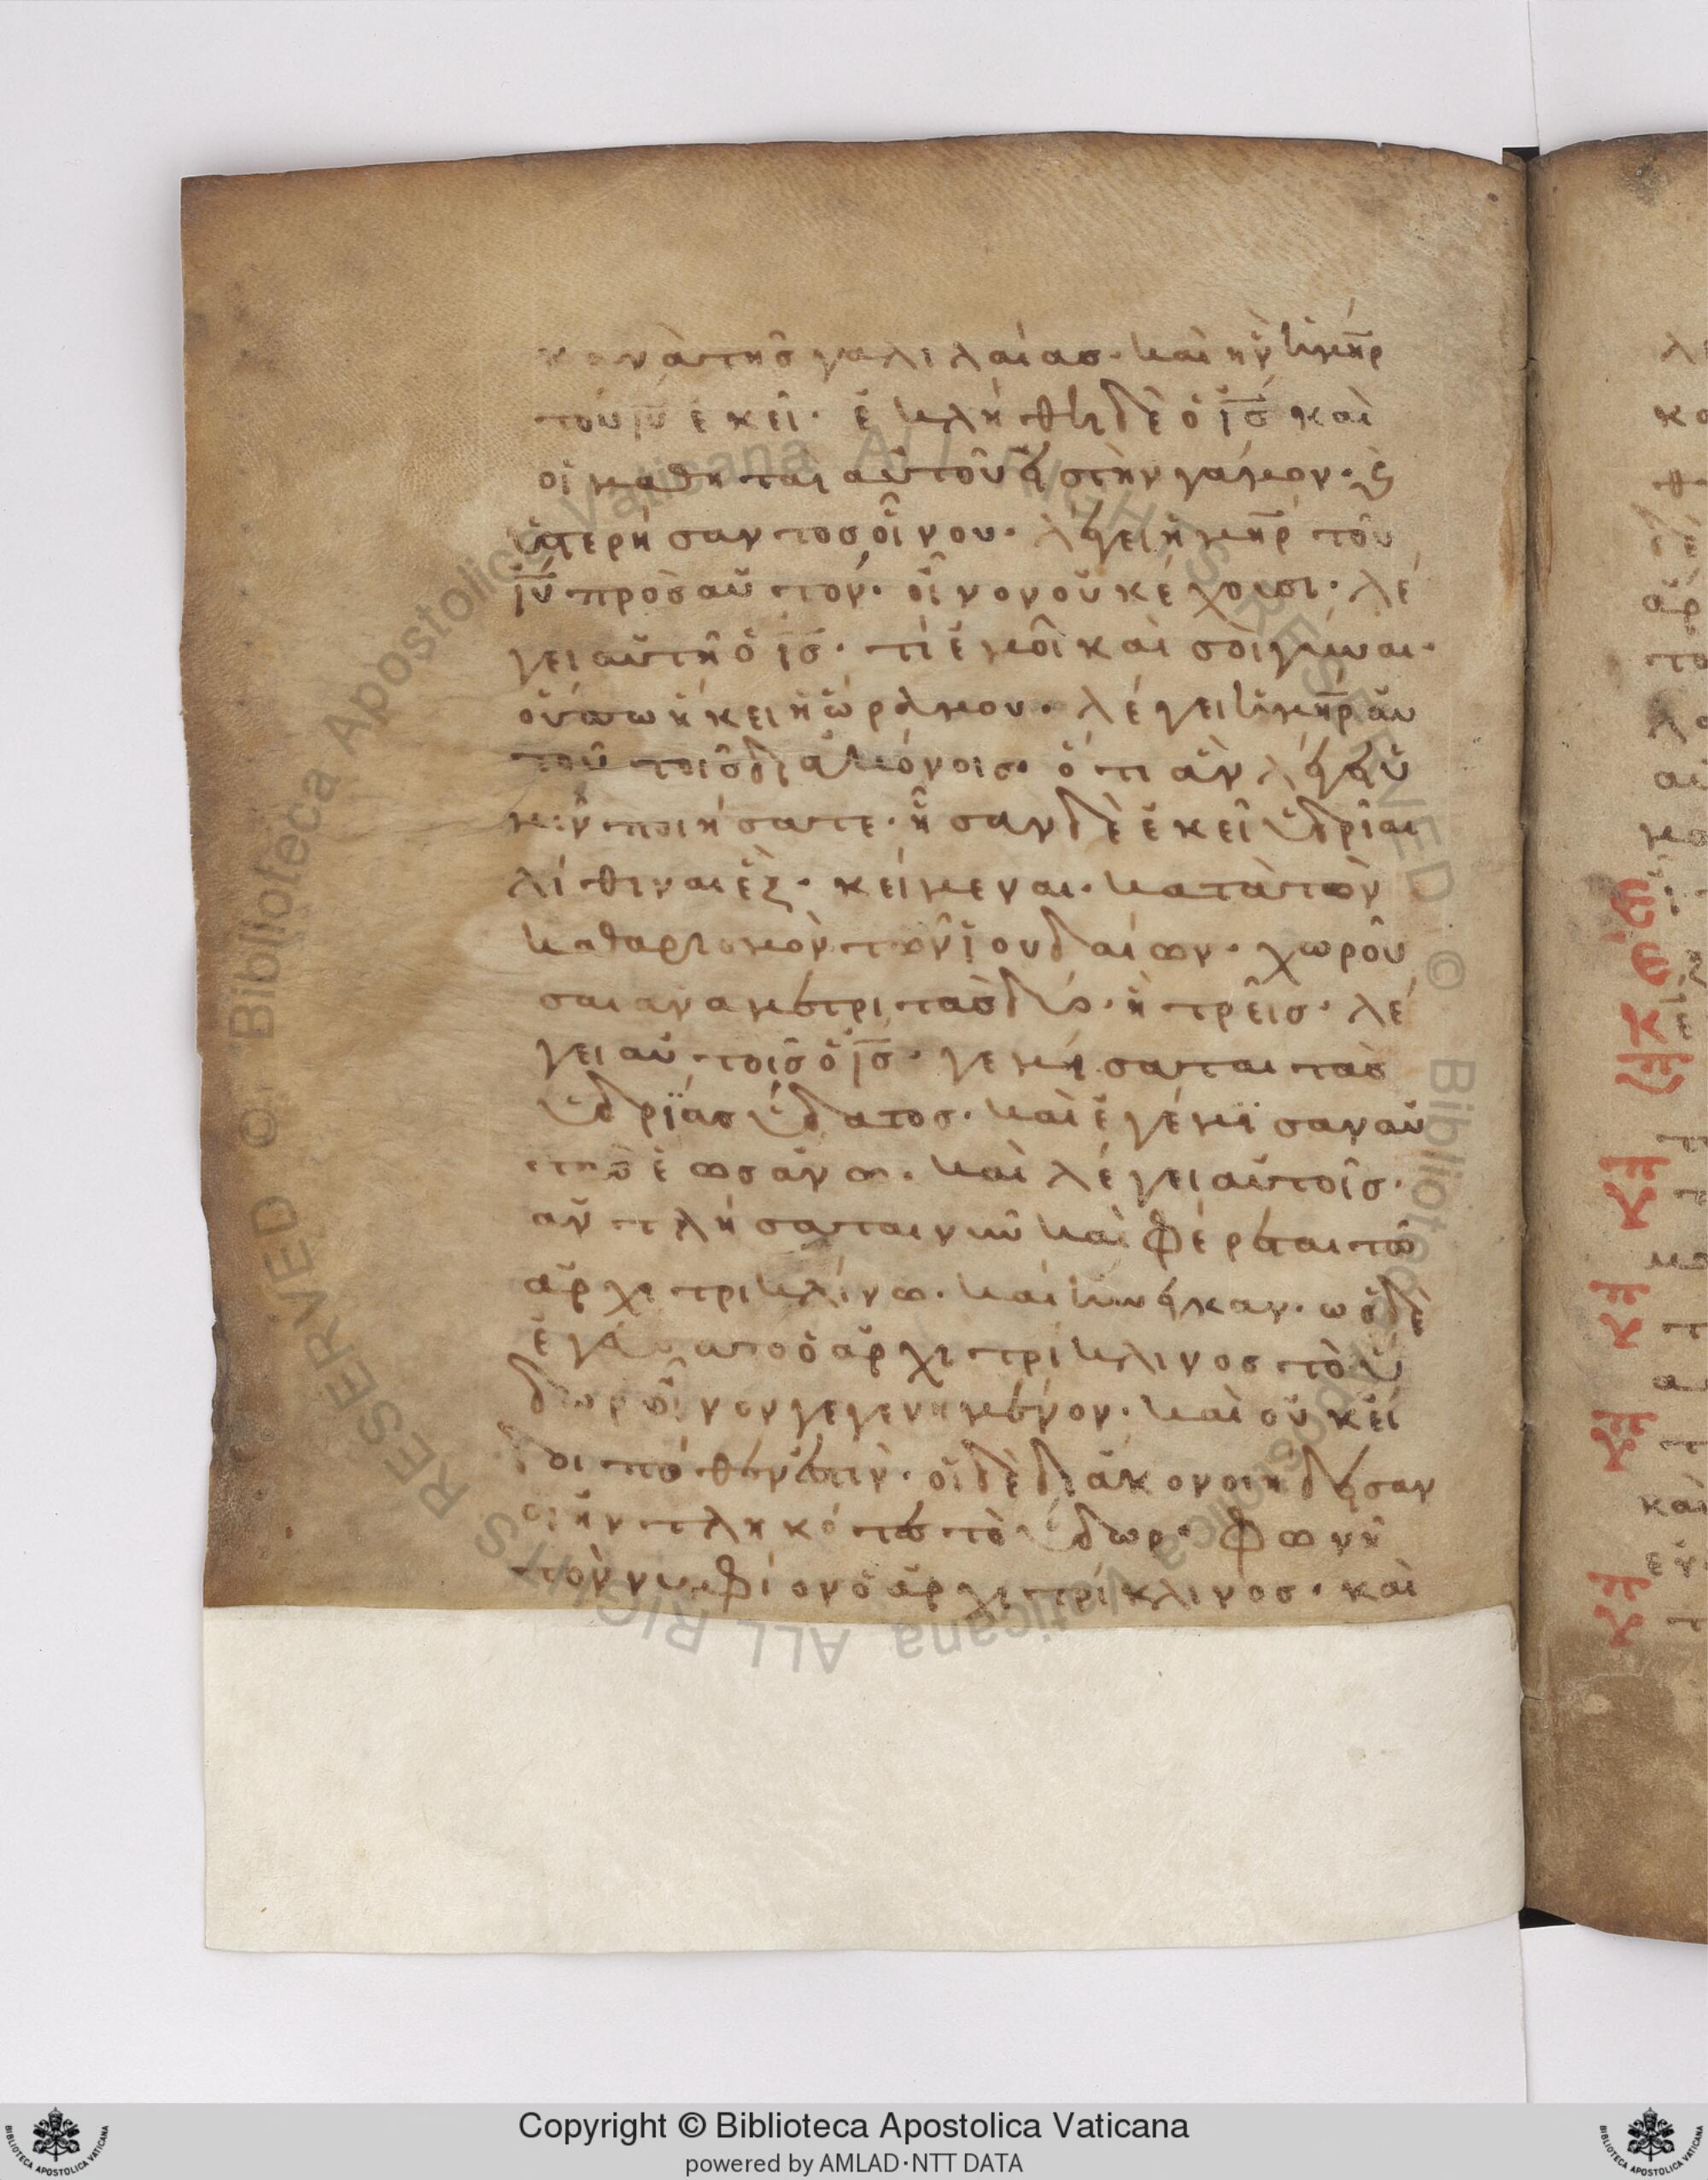 κανὰ τῆσ γαλιλαίασ· καὶ ἦν ἡ μη̅ρ
τοῦ ἰ̅υ̅ ἐκεῖ· ἐκλήθη δὲ ὁ ἰ̅σ̅ καὶ
οἱ μαθηται αὐτοῦ εἰσ τὴν γάμον· ϗ
ὑστερήσαντοσ οἴνου· λέγει ἡ μη̅ρ τοῦ
ἰ̅υ̅ πρὸσ αὐτόν· οἶνον οὐκ έχουσι· λέ
γει αὐτῆ ὁ ἰ̅σ̅· τί ἐμοὶ καὶ σοὶ γύναι·
οὔπω ἥκει ἡ ὥρα μου· λέγει ἡ μη̅ρ αὐ
τοῦ τοῖσ διακόνοισ· ὅ τι ἂν λέγει ὑ
μῖν ποιήσατε· ἦσαν δὲ ἐκεῖ ὑδρίαι
λίθιναι ἓξ· κείμεναι· κατὰ τὸν
καθαρισμὸν τῶν ἰουδαίων· χωροῦ
σαι ανα μετριτασ δύο· ἢ τρεῖσ· λέ
γει αὐτοῖσ ὁ ἰ̅σ̅· γεμήσαται τὰσ
ὑδρΐασ ὕδατοσ· καὶ ἐγέμϊσαν αὐ
τὰσ ἑωσ ἄνω· καὶ λέγει αὐτοῖσ·
αντλήσαται νῦν καὶ φέρεται τῶ
ἀρχιτρικλίνω· καὶ ἤνεγκαν· ωσ δὲ
ἐγεύσατο ὁ ἀρχιτρίκλινοσ τὸ ὕ
δωρ οἶνον γεγενημένον· καὶ οὐκ εἴ
δι πόθεν ἐστιν· οἱ δὲ διάκονοι ηδεισαν
οἱ ἠντληκότεσ τὸ ὕδωρ· φωνῆ
τὸν νυμφίον ὁ ἀρχιτρίκλινοσ· καὶ
Copyright © Biblioteca Apostolica Vaticana
powered by AMLAD·NTT DATA